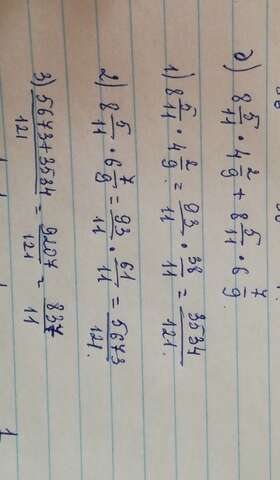 д) 8 5/11 · 4 2/9 + 8 5/11 · 6 7/9.
1) 8 5/11 · 4 2/9 = 93/11 · 38/11 = 3534/121.
2) 8 5/11 · 6 7/9 = 93/11 · 61/11 = 5673/121.
3) 5673+3534/121 = 9207/121 = 837/11